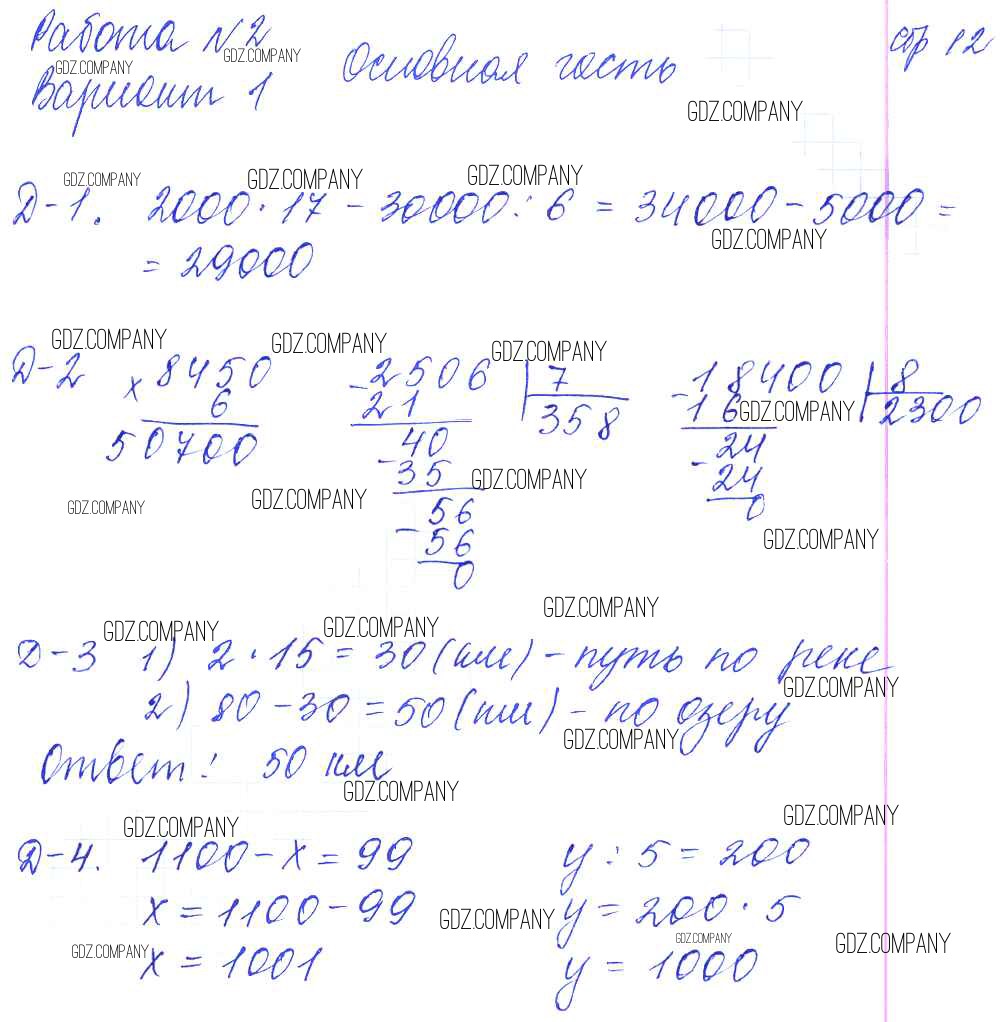 Работа №2
стр 12
GDZ.COMPANY
GDZ.COMPANY
Вариант 1 Основная часть
GDZ.COMPANY
GDZ.COMPANY GDZ.COMPANY GDZ.COMPANY
Д-1. 2000 · 17 - 30000 : 6 = 34000 - 5000 =
GDZ.COMPANY
= 29000
GDZ.COMPANY GDZ.COMPANY GDZ.COMPANY
Д-2 x 8450 - 2506 7 - 18400 8
6 21 358 - 16 GDZ.COMPANY 2300
50700 40 24
- 35 GDZ.COMPANY - 24
GDZ.COMPANY GDZ.COMPANY 56 0
- 56 GDZ.COMPANY
0
GDZ.COMPANY
GDZ.COMPANY GDZ.COMPANY
Д-3 1) 2 · 15 = 30 (км) - путь по реке
GDZ.COMPANY
2) 80 - 30 = 50 (км) - по озеру
GDZ.COMPANY
Ответ: 50 км
GDZ.COMPANY
GDZ.COMPANY GDZ.COMPANY
Д-4. 1100 - x = 99 y : 5 = 200
x = 1100 - 99 GDZ.COMPANY y = 200 · 5
GDZ.COMPANY GDZ.COMPANY GDZ.COMPANY
x = 1001 y = 1000